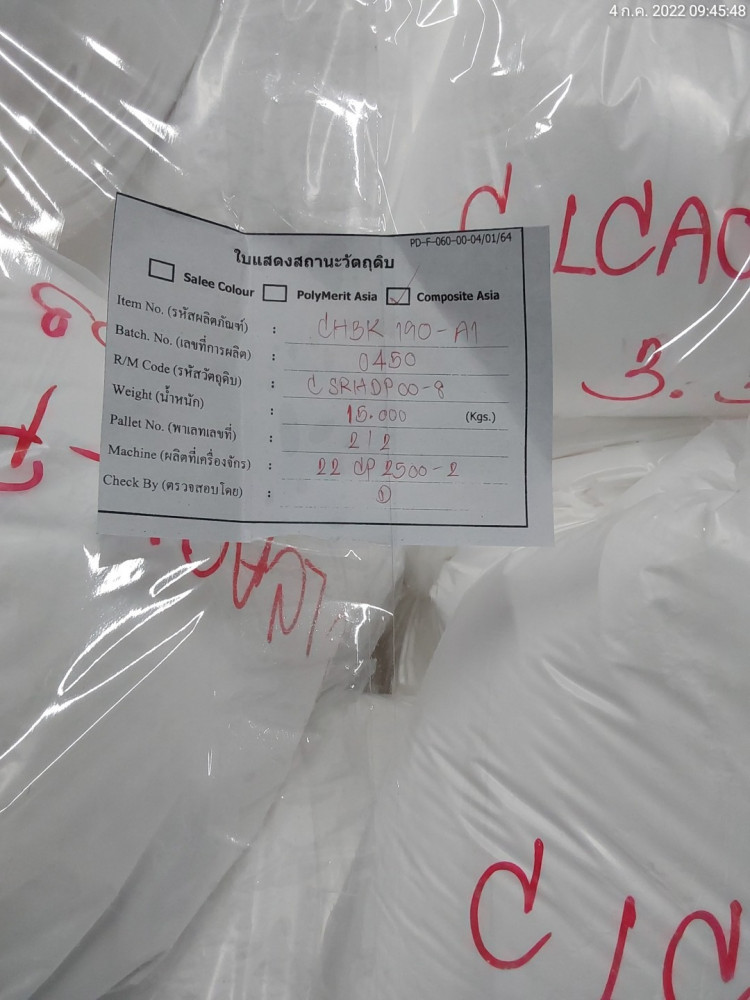 4 ก.ค. 2022 09:45:48
PD-F-060-00-04/01/64
ใบแสดงสถานะวัตถุดิบ
Salee Colour PolyMerit Asia Composite Asia
Item No. (รหัสผลิตภัณฑ์) : CHBK 190-A1
Batch. No. (เลขที่การผลิต) : 0450
R/M Code (รหัสวัตถุดิบ) : CSRHDP00-8
Weight (น้ำหนัก) : 15.000 (Kgs.)
Pallet No. (พาเลทเลขที่) : 2/2
Machine (ผลิตที่เครื่องจักร) : 22 CP 2500-2
Check By (ตรวจสอบโดย) :
LCAC
3.